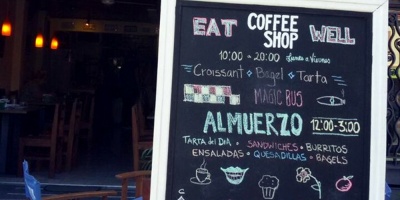 EAT COFFEE SHOP WELL
10:00 a 20:00 Lunes a Viernes
Croissant Bagel Tarta
MAGIC BUS
ALMUERZO 12:00-3:00
TARTA DEL DÍA • SANDWICHES • BURRITOS
ENSALADAS • QUESADILLAS • BAGELS